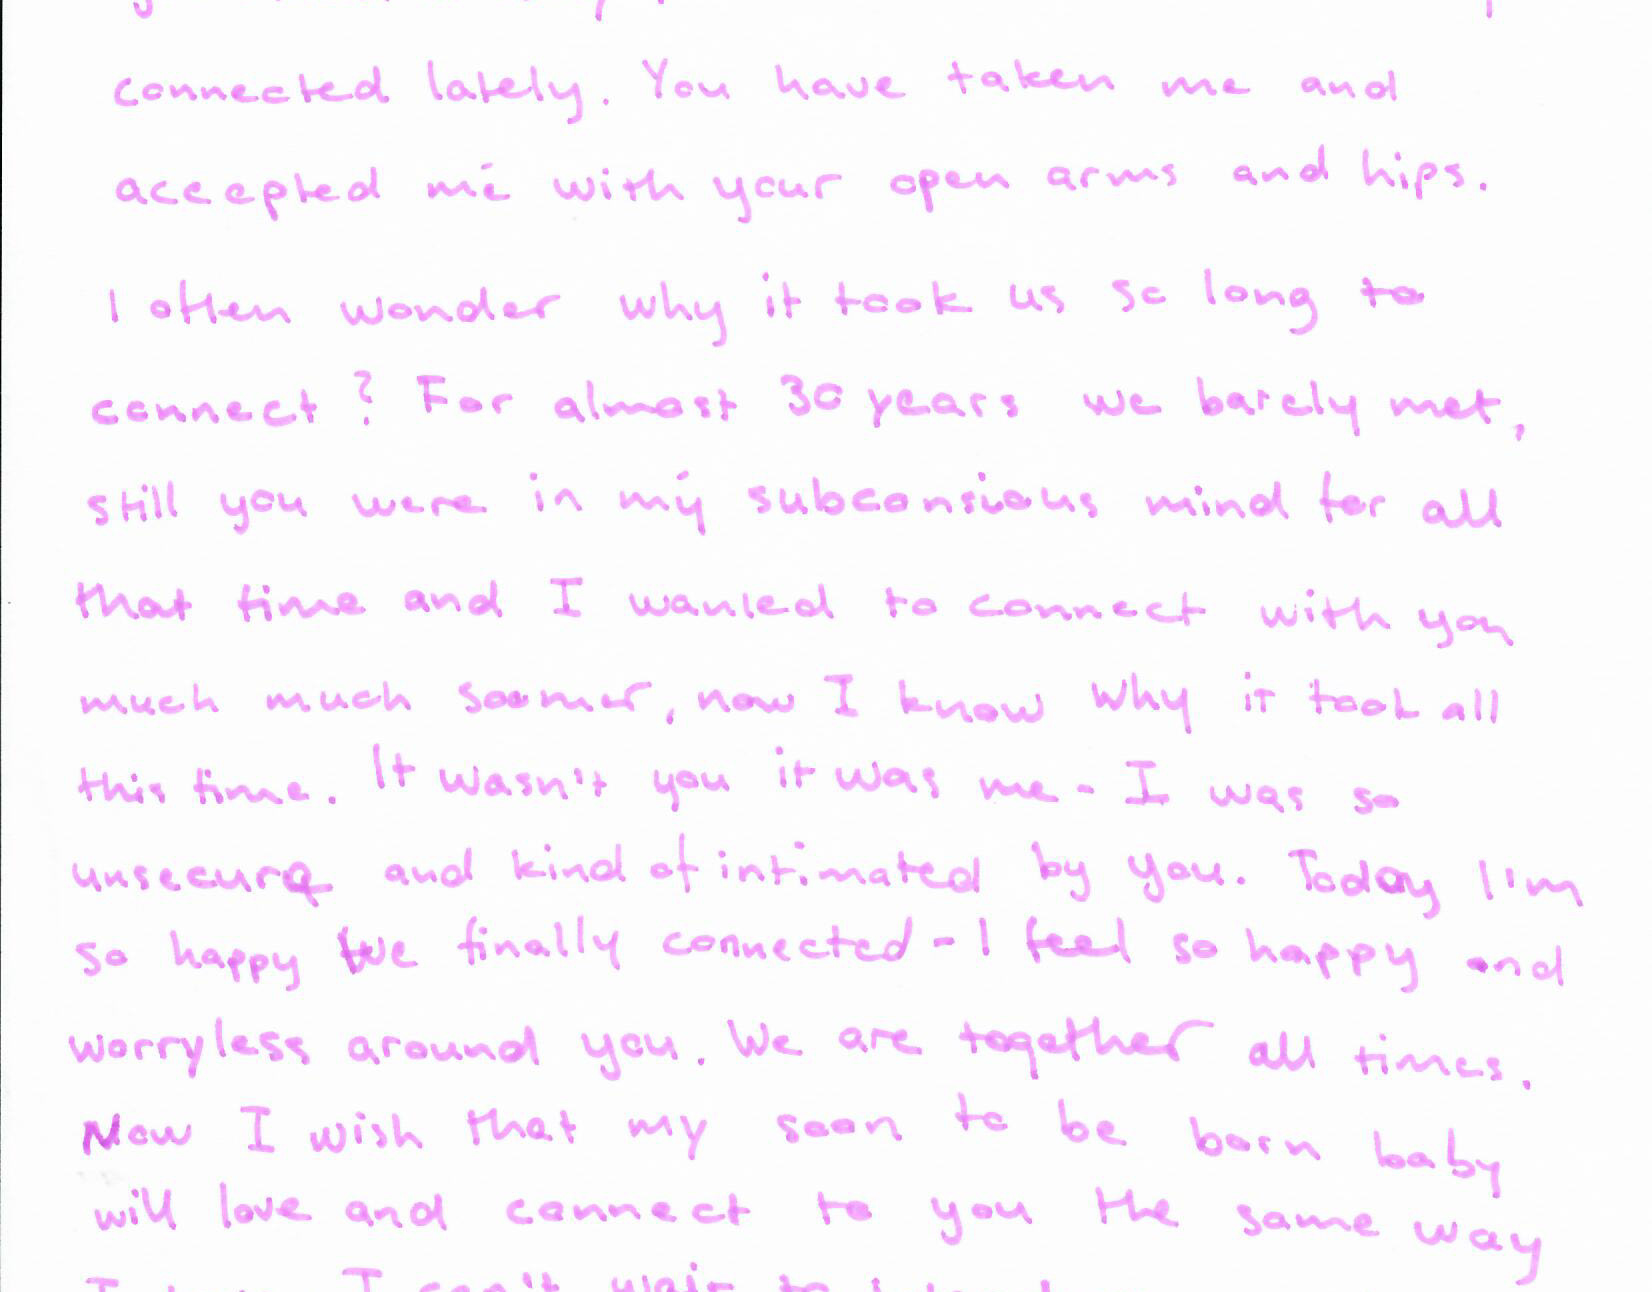 connected lately. You have taken me and
accepted me with your open arms and hips.
I often wonder why it took us so long to
connect? For almost 30 years we barely met,
still you were in my subconsious mind for all
that time and I wanted to connect with you
much much soomer, now I know why it took all
this time. It wasn't you it was me - I was so
unsecure and kind of intimated by you. Today I'm
so happy we finally connected - I feel so happy and
worryless around you. We are together all times.
Now I wish that my soon to be born baby
will love and connect to you the same way
I can't wait to